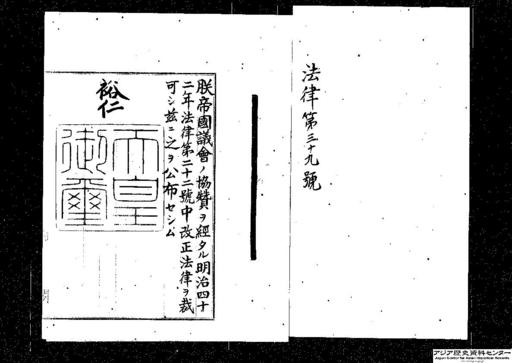 法律第三十九號
朕帝國議會ノ協贊ヲ經タル明治四十
二年法律第二十二號中改正法律ヲ裁
可シ玆ニ之ヲ公布セシム
裕仁
天皇
御璽
アジア歴史資料センター
Japan Center for Asian Historical Records